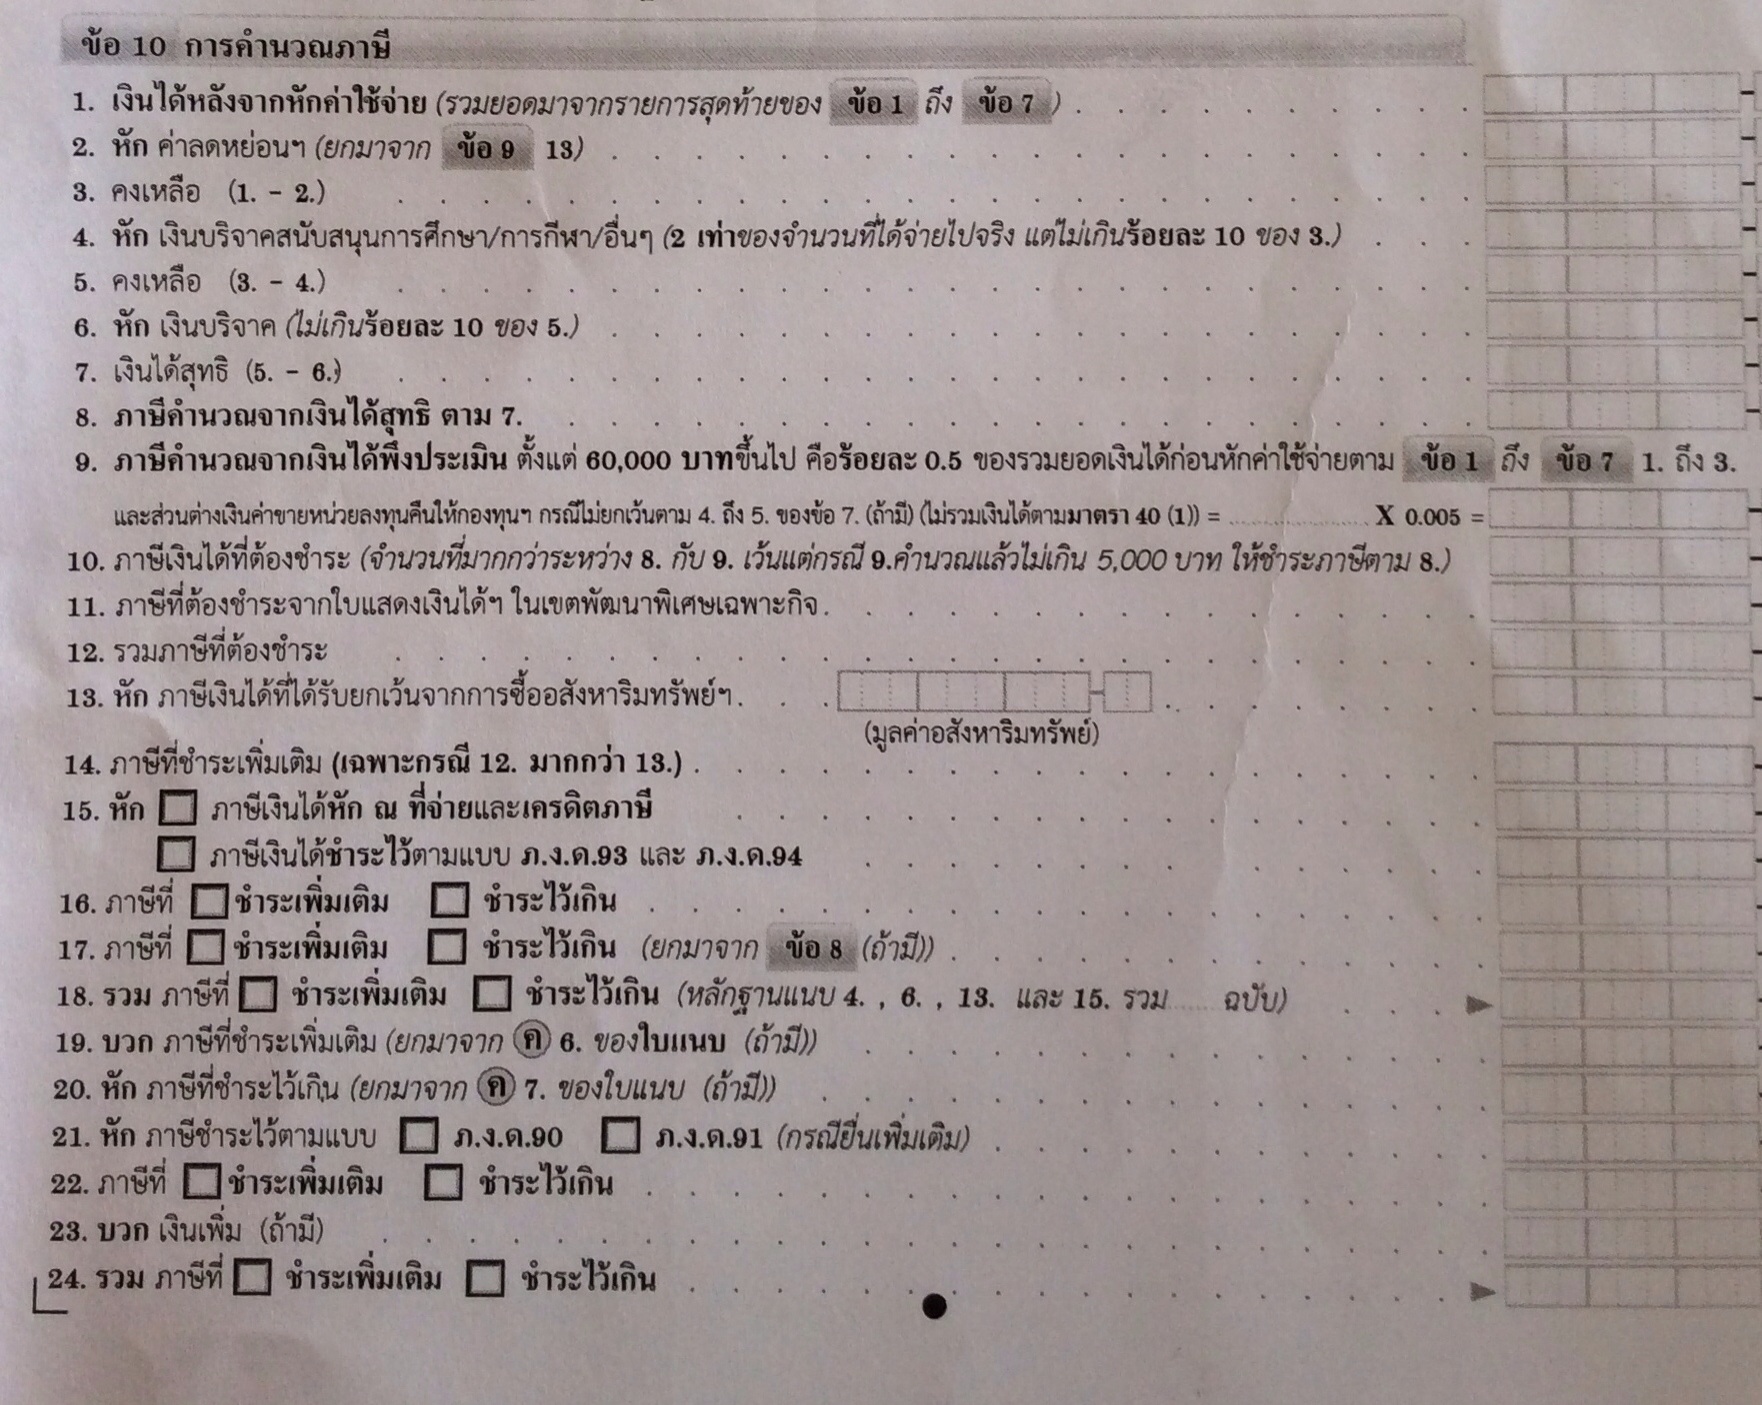 ข้อ 10 การคำนวณภาษี
1. เงินได้หลังจากหักค่าใช้จ่าย (รวมยอดมาจากรายการสุดท้ายของ ข้อ 1 ถึง ข้อ 7 )
2. หัก ค่าลดหย่อนฯ (ยกมาจาก ข้อ 9 13)
3. คงเหลือ (1. - 2.)
4. หัก เงินบริจาคสนับสนุนการศึกษา/การกีฬา/อื่นๆ (2 เท่าของจำนวนที่ได้จ่ายไปจริง แต่ไม่เกินร้อยละ 10 ของ 3.)
5. คงเหลือ (3. - 4.)
6. หัก เงินบริจาค (ไม่เกินร้อยละ 10 ของ 5.)
7. เงินได้สุทธิ (5. - 6.)
8. ภาษีคำนวณจากเงินได้สุทธิ ตาม 7.
9. ภาษีคำนวณจากเงินได้พึงประเมิน ตั้งแต่ 60,000 บาทขึ้นไป คือร้อยละ 0.5 ของรวมยอดเงินได้ก่อนหักค่าใช้จ่ายตาม ข้อ 1 ถึง ข้อ 7 1. ถึง 3.
และส่วนต่างเงินค่าขายหน่วยลงทุนคืนให้กองทุนฯ กรณีไม่ยกเว้นตาม 4. ถึง 5. ของข้อ 7. (ถ้ามี) (ไม่รวมเงินได้ตามมาตรา 40 (1)) = X 0.005 =
10. ภาษีเงินได้ที่ต้องชำระ (จำนวนที่มากกว่าระหว่าง 8. กับ 9. เว้นแต่กรณี 9.คำนวณแล้วไม่เกิน 5,000 บาท ให้ชำระภาษีตาม 8.)
11. ภาษีที่ต้องชำระจากใบแสดงเงินได้ฯ ในเขตพัฒนาพิเศษเฉพาะกิจ
12. รวมภาษีที่ต้องชำระ
13. หัก ภาษีเงินได้ที่ได้รับยกเว้นจากการซื้ออสังหาริมทรัพย์ฯ
(มูลค่าอสังหาริมทรัพย์)
14. ภาษีที่ชำระเพิ่มเติม (เฉพาะกรณี 12. มากกว่า 13.)
15. หัก ภาษีเงินได้หัก ณ ที่จ่ายและเครดิตภาษี
ภาษีเงินได้ชำระไว้ตามแบบ ภ.ง.ด.93 และ ภ.ง.ด.94
16. ภาษีที่ ชำระเพิ่มเติม ชำระไว้เกิน
17. ภาษีที่ ชำระเพิ่มเติม ชำระไว้เกิน (ยกมาจาก ข้อ 8 (ถ้ามี))
18. รวม ภาษีที่ ชำระเพิ่มเติม ชำระไว้เกิน (หลักฐานแนบ 4. , 6. , 13. และ 15. รวม ฉบับ)
19. บวก ภาษีที่ชำระเพิ่มเติม (ยกมาจาก ค 6. ของใบแนบ (ถ้ามี))
20. หัก ภาษีที่ชำระไว้เกิน (ยกมาจาก ค 7. ของใบแนบ (ถ้ามี))
21. หัก ภาษีชำระไว้ตามแบบ ภ.ง.ด.90 ภ.ง.ด.91 (กรณียื่นเพิ่มเติม)
22. ภาษีที่ ชำระเพิ่มเติม ชำระไว้เกิน
23. บวก เงินเพิ่ม (ถ้ามี)
24. รวม ภาษีที่ ชำระเพิ่มเติม ชำระไว้เกิน